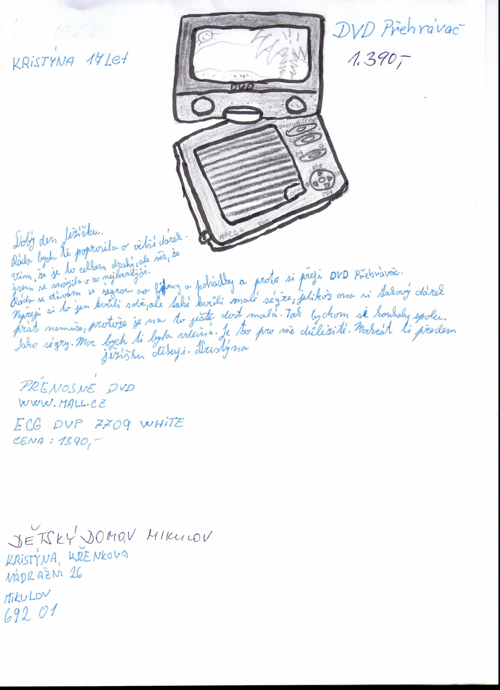 KRISTÝNA 17 Let
DVD Přehrávač
1.390,-
DVD
Dobý den Ježíšku.
Ráda bych tě poprosila o větší dárek.
Vím, že je to celkem drahý, ale věř, že
jsem se snažila o co nejlevnější.
Ráda se dívám se segrou na filmy a pohádky a proto si přeji DVD Přehrávač.
Nepřeji si to jen kvůli sobě, ale také kvůli malé ségře, jelikož ona si takový dárek
přát nemůže, protože je na to ještě dost malá. Tak bychom se koukaly spolu.
Jako ségry. Moc bych ti byla vděčná. Je to pro mě důležité. Mockrát ti předem
Ježíšku děkuji. Kristýna
PŘENOSNÉ DVD
WWW.MALL.CZ
ECG DVP 7709 WHITE
CENA : 1390,-
DĚTSKÝ DOMOV MIKULOV
KRISTÝNA KŘENKOVA
NÁDRAŽNÍ 26
MIKULOV
692 01